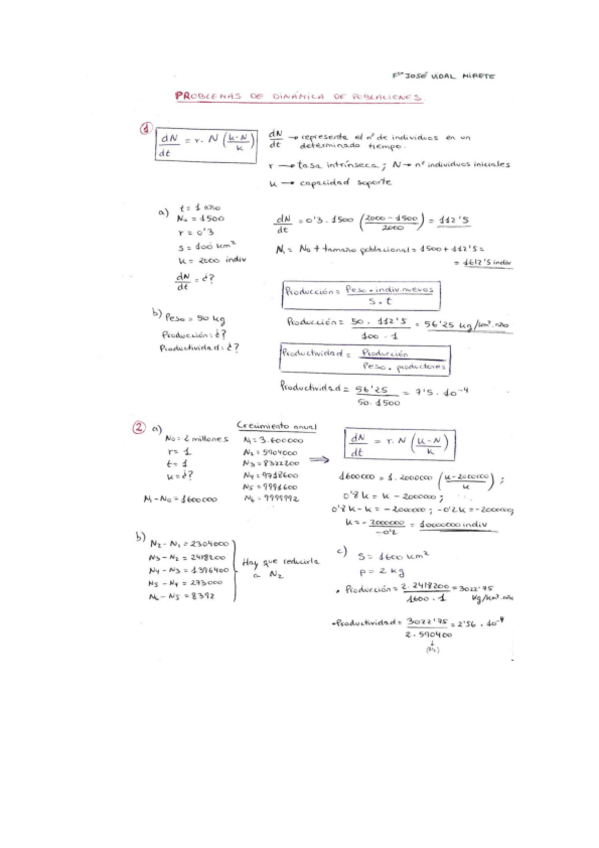 Fdo JOSÉ VIDAL MIRETE
PROBLEMAS DE DINÁMICA DE POBLACIONES
1
dN/dt = r · N (K-N/K)
dN/dt → representa el nº de individuos en un determinado tiempo.
r → tasa intrínseca; N → nº individuos iniciales
K → capacidad soporte
a) t = 1 año
N₀ = 1500
r = 0'3
S = 100 km²
K = 2000 indiv
dN/dt = ¿?
dN/dt = 0'3 · 1500 (2000 - 1500/2000) = 112'5
N₁ = N₀ + tamaño poblacional = 1500 + 112'5 =
= 1612'5 indiv
b) Peso = 50 kg
Producción = ¿?
Productividad = ¿?
Producción = Peso · indiv. nuevos / S · t
Producción = 50 · 112'5 / 100 · 1 = 56'25 kg/km² · año
Productividad = Producción / Peso · productores
Productividad = 56'25 / 50 · 1500 = 7'5 · 10⁻⁴
2 a)
N₀ = 2 millones
r = 1
t = 1
K = ¿?
N₁ - N₀ = 1600000
Crecimiento anual
N₁ = 3.600000
N₂ = 5904000
N₃ = 8322200
N₄ = 9718600
N₅ = 9991600
N₆ = 9999992
⇒
dN/dt = r · N (K-N/K)
1600000 = 1 · 2000000 (K-2000000/K) ;
0'8 K = K - 2000000 ;
0'8 K - K = - 2000000 ; -0'2 K = -2000000
K = - 2000000 / -0'2 = 10000000 indiv
b)
N₂ - N₁ = 2304000
N₃ - N₂ = 2418200
N₄ - N₃ = 1396400
N₅ - N₄ = 273000
N₆ - N₅ = 8392
Hay que reducirla a N₂
c) S = 1600 km²
P = 2 kg
• Producción = 2 · 2418200 / 1600 · 1 = 3022'75 kg/km² · año
• Productividad = 3022'75 / 2 · 590400 = 2'56 · 10⁻⁴